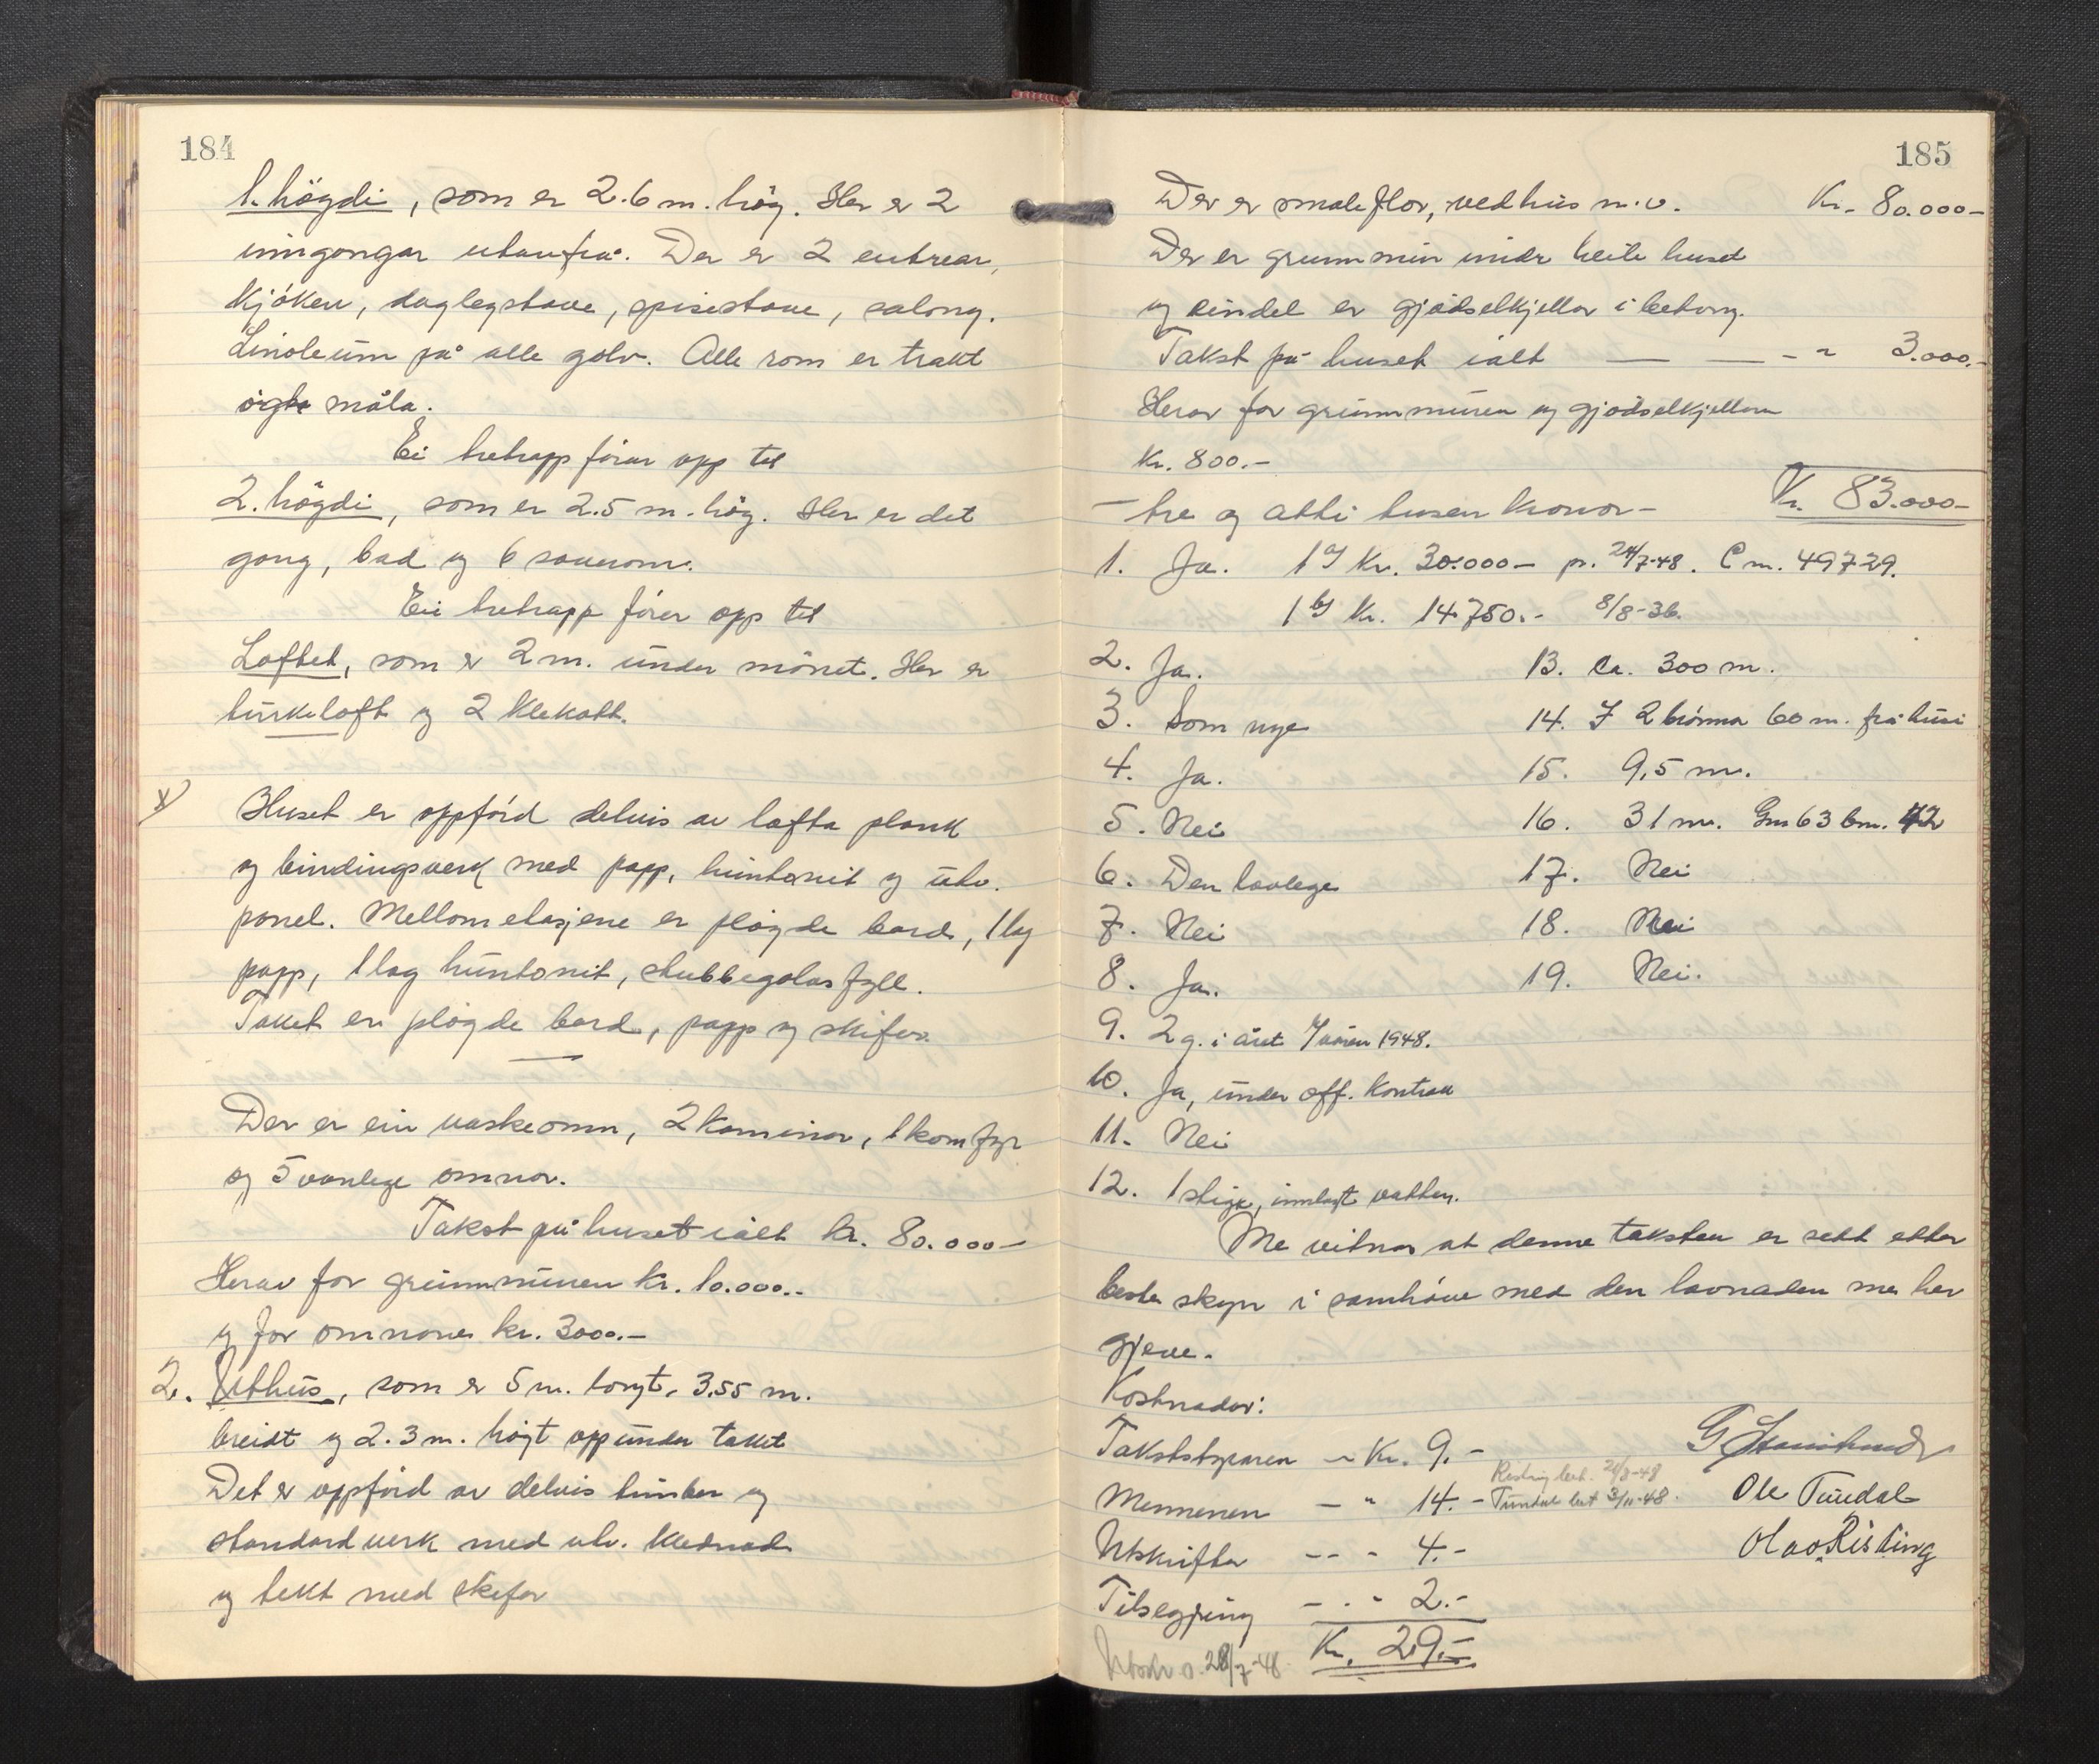 184
1. högdi, som er 2.6 m. høg. Her er 2
inngongar utanfrå. Der er 2 entrear,
kjøken, daglegstove, spisestove, salong.
Linoleum på alle golv. Alle rom er trekt
og måla.
Ei tretrapp fører opp til
2. högdi, som er 2.5 m. høg. Her er det
gong, bad og 6 soverom.
Ei tretrapp fører opp til
Loftet, som er 2 m. under mønet. Her er
turkeloft og 2 klekott.
x) Huset er oppførd delvis av lafta plank
og bindingsverk med papp, huntonit og utv.
panel. Mellom etasjene er pløgde bord, 1 lag
papp, 1 lag huntonit, stubbegolvsfyll.
Taket er pløgde bord, papp og skifer.
Der er ein vaskeomn, 2 kaminar, 1 komfyr
og 5 vanlege omnar.
Takst på huset ialt kr. 80.000-
Herav for grunnmuren kr. 10.000.-
og for omnane kr. 3000.-
2. Uthus, som er 5 m. langt, 3,55 m.
breidt og 2.3 m. høgt opp under taket
Det er oppførd av delvis timber og
standardverk med utv. klednad
og tekt med skifer
185
Der er smaleflor, vedhus m.v. Kr. 80.000-
Der er grunnmur under heile huset
og eindel er gjødselkjellar i betong.
Takst på huset ialt — — - " 3.000.-
Herav for grunnmuren og gjødselkjellaren
Kr. 800.-
- tre og åtti tusen kronor - Kr. 83.000-
1. Ja. 1 a) Kr. 30.000- pr. 24/7-48. C m. 49729.
1 b) Kr. 14750.- 8/8-36.
2. Ja. 13. Ca. 300 m.
3. Som nye 14. I 2 brønnar 60 m. frå husi
4. Ja. 15. 9,5 m.
5. Nei 16. 31 m. Gm 63 bm. 42
6. Den lovlege 17. Nei
7. Nei 18. Nei
8. Ja. 19. Nei.
9. 2 g. i året I våren 1948.
10. Ja, under off. kontroll
11. Nei
12. 1 stige, innlagt vatten.
Me vitnar at denne taksten er sett etter
beste skyn i samhøve med den lovnaden me her
gjeve.
Kostnader:
Takststyraren - Kr. 9.- G
Mennenen - " 14.- Risting bet. 28/8-48
Tundal bet 3/11-48. Ole Tundal
Utskrifter - - " 4.- Olav Risting
Tilsegjing - - " 2.-
Kr. 29.-
Utskr. s. 28/7-48